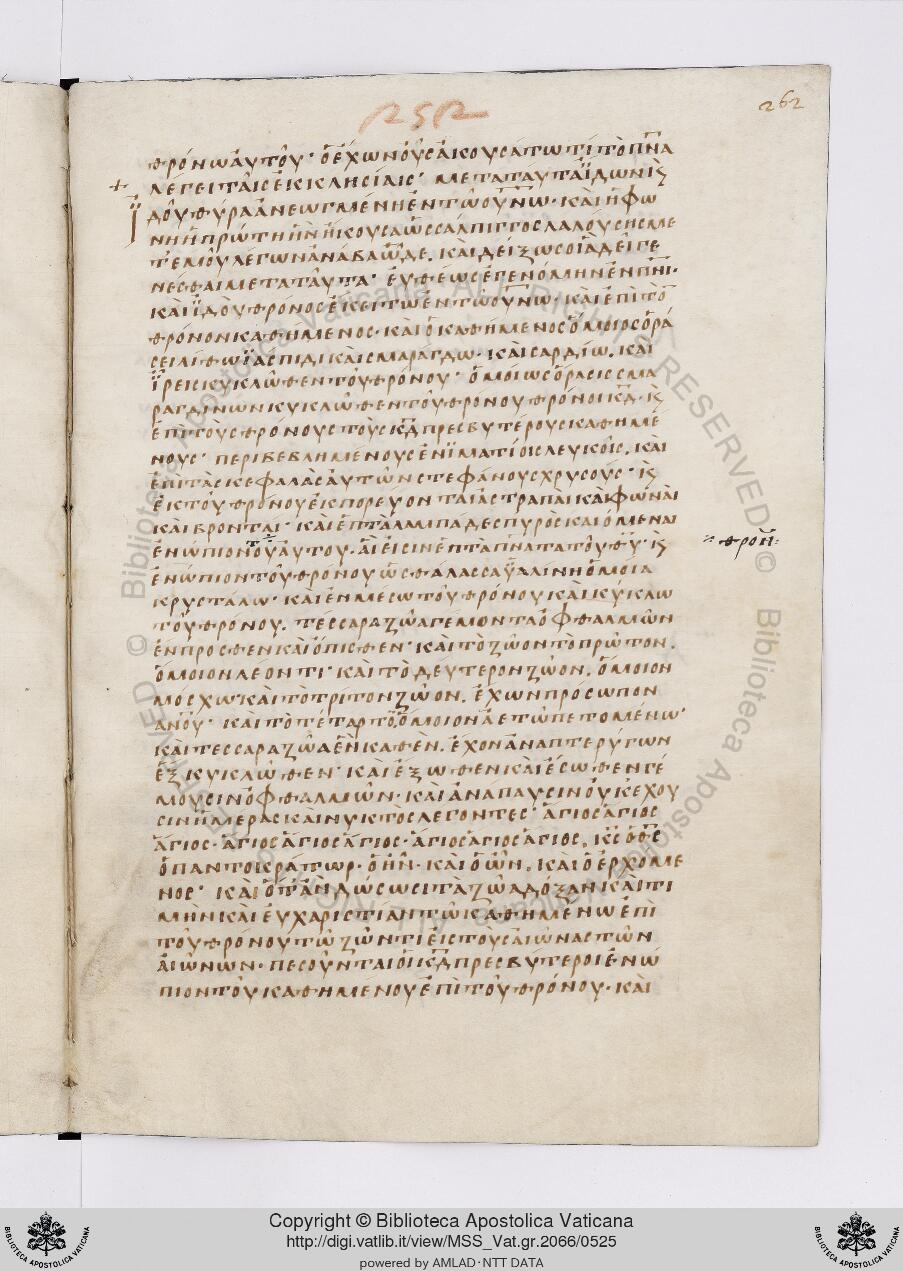 252
262
θρόνω αὐτοῦ· ὁ ἔχων οὖς ἀκουσάτω τί τὸ πνα
λέγει ταῖς ἐκκλησίαις· μετα ταῦτα ἴδων ϗ
ϊδοὺ θύρα ἀνεωγμένη ἐν τῶ ουνω· καὶ ἡ φω
νὴ ἡ πρώτη ἣν ἤκουσα ὡς σάλπιγγος λαλούσης με
τ' ἐμοῦ λέγων ἀνάβα ὧδε. καὶ δείξω σοι ἃ δεῖ γε
νέσθαι μετα ταῦτα· εὐθέως ἐγενόμην ἐν πνι·
καὶ ϊδοὺ θρόνος ἔκειτω ἐν τῶ ουνω· καὶ ἐπὶ τὸ
θρόνον καθήμενος· καὶ ὁ καθήμενος ὅμοιος ὁρά
σει λίθω ϊάσπιδι καὶ σμαράγδω· καὶ σαρδίω. καὶ
ἵρεις κυκλῶθεν τοῦ θρόνου· ὁμοίως ὅρασις σμα
ραγδίνων κυκλῶθεν τοῦ θρόνου θρόνοι κδ· ϗ
ἐπὶ τοὺς θρόνους τοὺς κδ πρεσβυτέρους καθημέ
νους· περιβεβλημένους ἐν ϊματίοις λευκοῖς. καὶ
ἐπὶ τὰς κεφαλὰς αὐτῶν στεφάνους χρυσούς· ϗ
ἐκ τοῦ θρόνου ἐκπορεύονται ἀστραπαὶ καὶ φωναὶ
καὶ βρονταί· καὶ ἑπτὰ λαμπάδες πυρὸς καιόμεναι
ἐνώπιον τοῦ αὐτου· αἵ εἰσιν ἑπτὰ πνατα τοῦ θυ· ϗ
θρον
ἐνώπιον τοῦ θρόνου ὡς θάλασσα ὑαλίνη ὁμοία
κρυστάλω· καὶ ἐν μέσω τοῦ θρόνου καὶ κύκλω
τοῦ θρόνου. τέσσαρα ζῶα γέμοντα ὀφθαλμῶν
ἔνπροσθεν καὶ ὄπισθεν· καὶ τὸ ζῶον τὸ πρῶτον.
ὅμοιον λέοντι· καὶ τὸ δεύτερον ζῶον. ὅμοιον
μόσχω· καὶ τὸ τρίτον ζῶον. ἔχων πρόσωπον
ανου· καὶ τὸ τέταρτο, ὅμοιον ἀετῶ πετομένω·
καὶ τέσσαρα ζῶα ἓν καθ' ἕν. ἔχον ἀνα πτερύγων
ἓξ κυκλῶθεν· καὶ ἔξωθεν καὶ ἔσωθεν γέ
μουσιν ὀφθαλμῶν· καὶ ἀνάπαυσιν οὐκ ἔχου
σιν ἡμέρας καὶ νυκτὸς λέγοντες· ἅγιος ἅγιος
ἅγιος· ἅγιος ἅγιος ἅγιος· ἅγιος ἅγιος ἅγιος. κς ὁ θς
ὁ παντοκράτωρ· ὁ ἦν· καὶ ὁ ὢν. καὶ ὁ ἐρχόμε
νος· καὶ ὅταν δώσωσι τὰ ζῶα δόξαν καὶ τι
μὴν καὶ εὐχαριστίαν τῶ καθημένω ἐπὶ
τοῦ θρόνου τῶ ζῶντι εἰς τοὺς αἰῶνας τῶν
αἰώνων· πεσοῦνται οἱ κδ πρεσβύτεροι ἐνώ
πιον τοῦ καθημένου ἐπὶ τοῦ θρόνου· καὶ
© Biblioteca Apostolica Vaticana. ALL RIGHTS RESERVED
BIBLIOTECA APOSTOLICA VATICANA
Copyright © Biblioteca Apostolica Vaticana
http://digi.vatlib.it/view/MSS_Vat.gr.2066/0525
powered by AMLAD·NTT DATA
BIBLIOTECA APOSTOLICA VATICANA